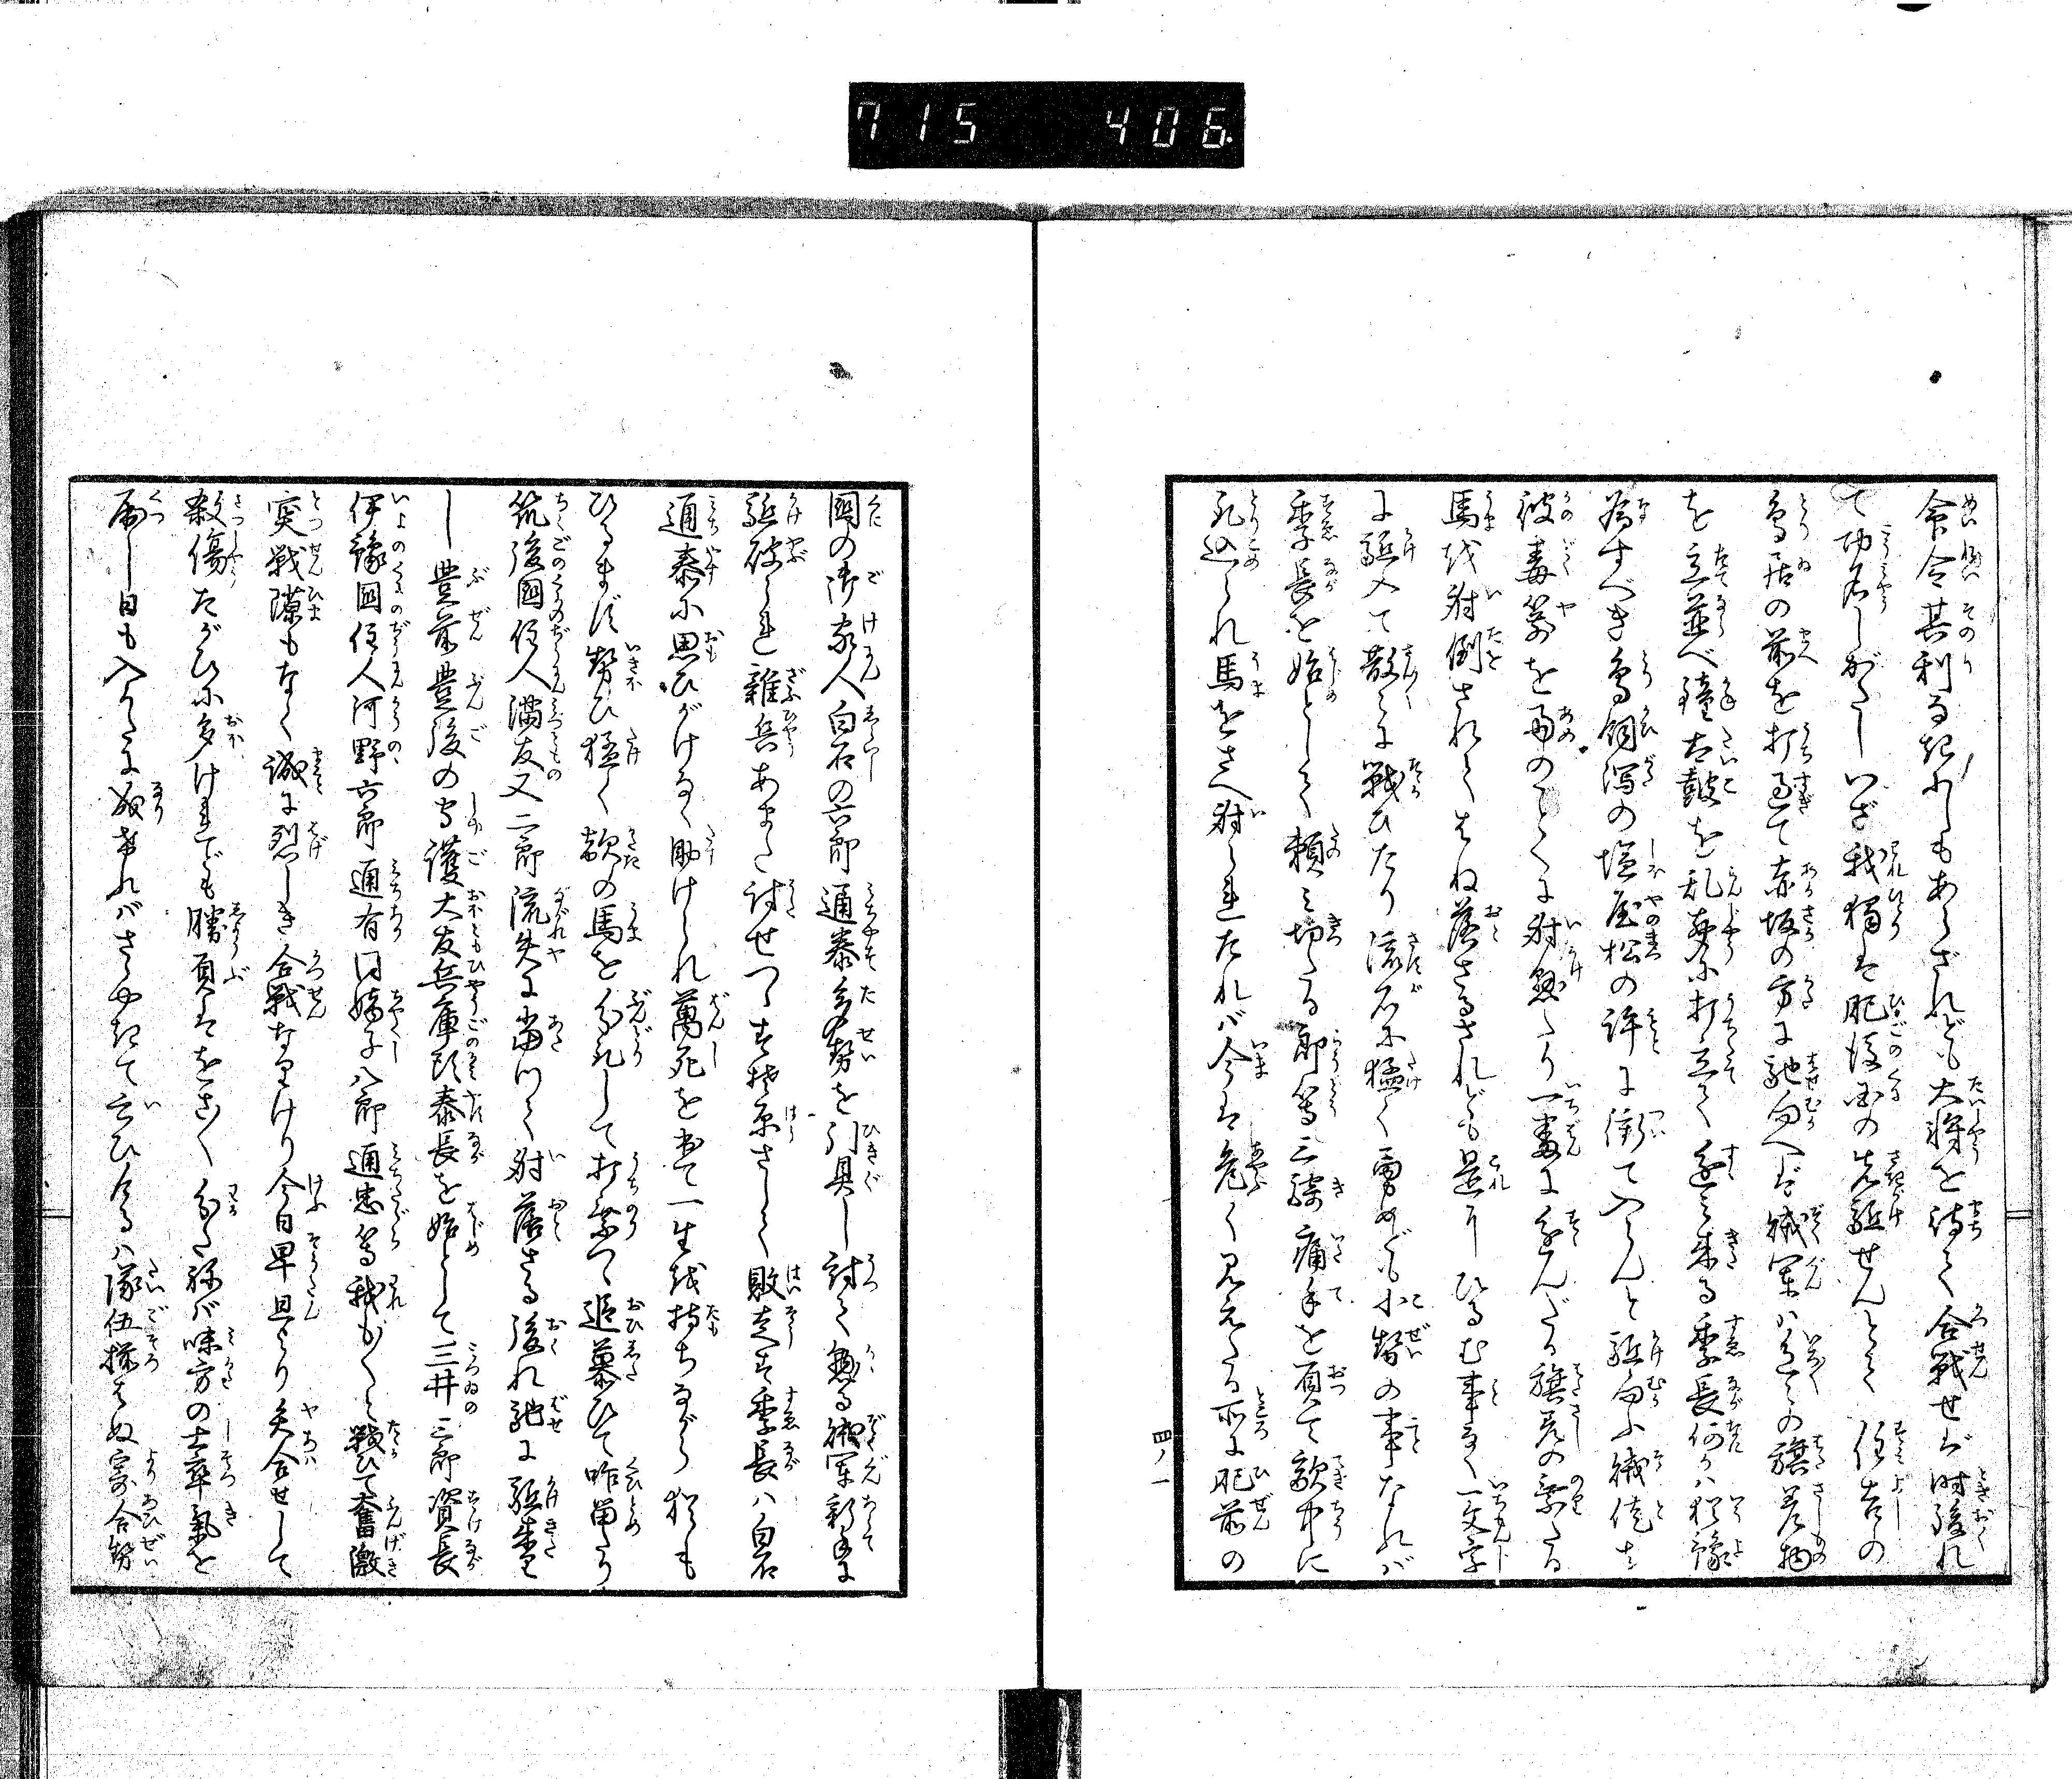 715 406
命令其利なきにしもあらざれども大将を待て合戦せば時後れ
て功名しがたしいざ我獨は肥後国の先駈せんとて住吉の
鳥居の前を打過て赤坂の方に馳向へば賊軍は色々の旗差物
を立並べ鐘太皷を乱奏に打立て進み来る季長何かは猶豫
為すべき鳥飼潟の塩屋松の許に衝て入らんと駈向ふ賊徒は
彼毒箭を雨のごとくに射懸たり一番に進んだる旗差の乗たる
馬を射倒されてはね落さるされども是に ひるむ事なく一文字
に駈入て散々に戦ひたり流石に猛く勇めども小勢の事なれば
季長を始として頼み切たる郎等三騎痛手を負て敵中に
取込られ馬をさへ射られたれば今は危く見えたる所に肥前の
四ノ一
國の御家人白石の六郎通泰多勢を引具し討て懸る賊軍新手に
駈破られ雜兵あまた討せつゝ 原さして敗走す季長は白石
通泰に思ひがけなく助けられ萬死を出て一生を持ちながら猶も
ひるまず勢ひ猛く敵の馬を分取して打乗つゝ追慕ひて喰留たり
筑後國住人満友又二郎流矢に當りて射落さる後れ馳に駈来
し豊前豊後の守護大友兵庫頭泰長を始として三井三郎資長
伊豫國住人河野六郎通有同嫡子八郎通忠等我もくと戦ひて奮激
突戦隙もなく誠に烈しき合戦なりけり今日早旦より矢合せして
殺傷たがひに多けれども勝負はをさく分たねば味方の士卒氣を
屈し日も入かたに成ければさらぬだて云ひける八隊伍揃はぬ寄合勢